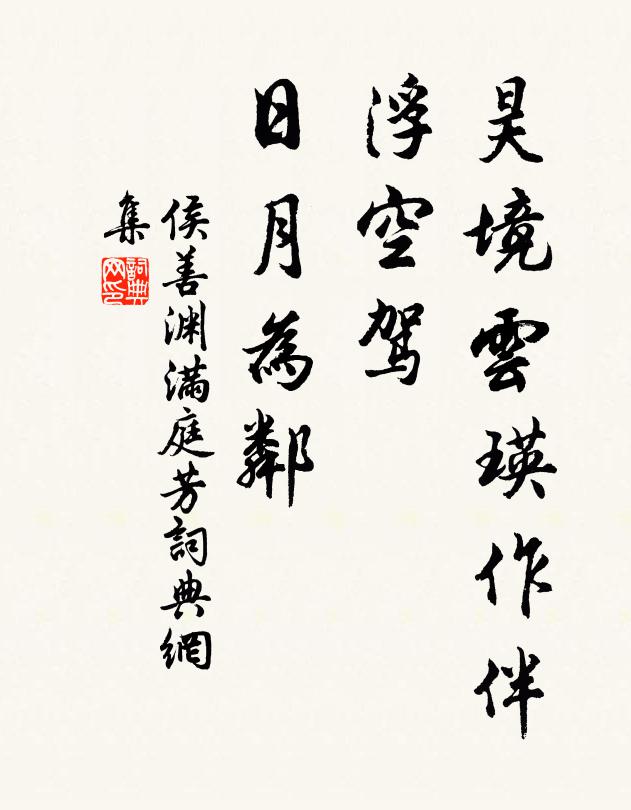 昊境雲瑛作伴
浮空駕
日月為鄰
侯善渊满庭芳詞典網
集
詞典
网印